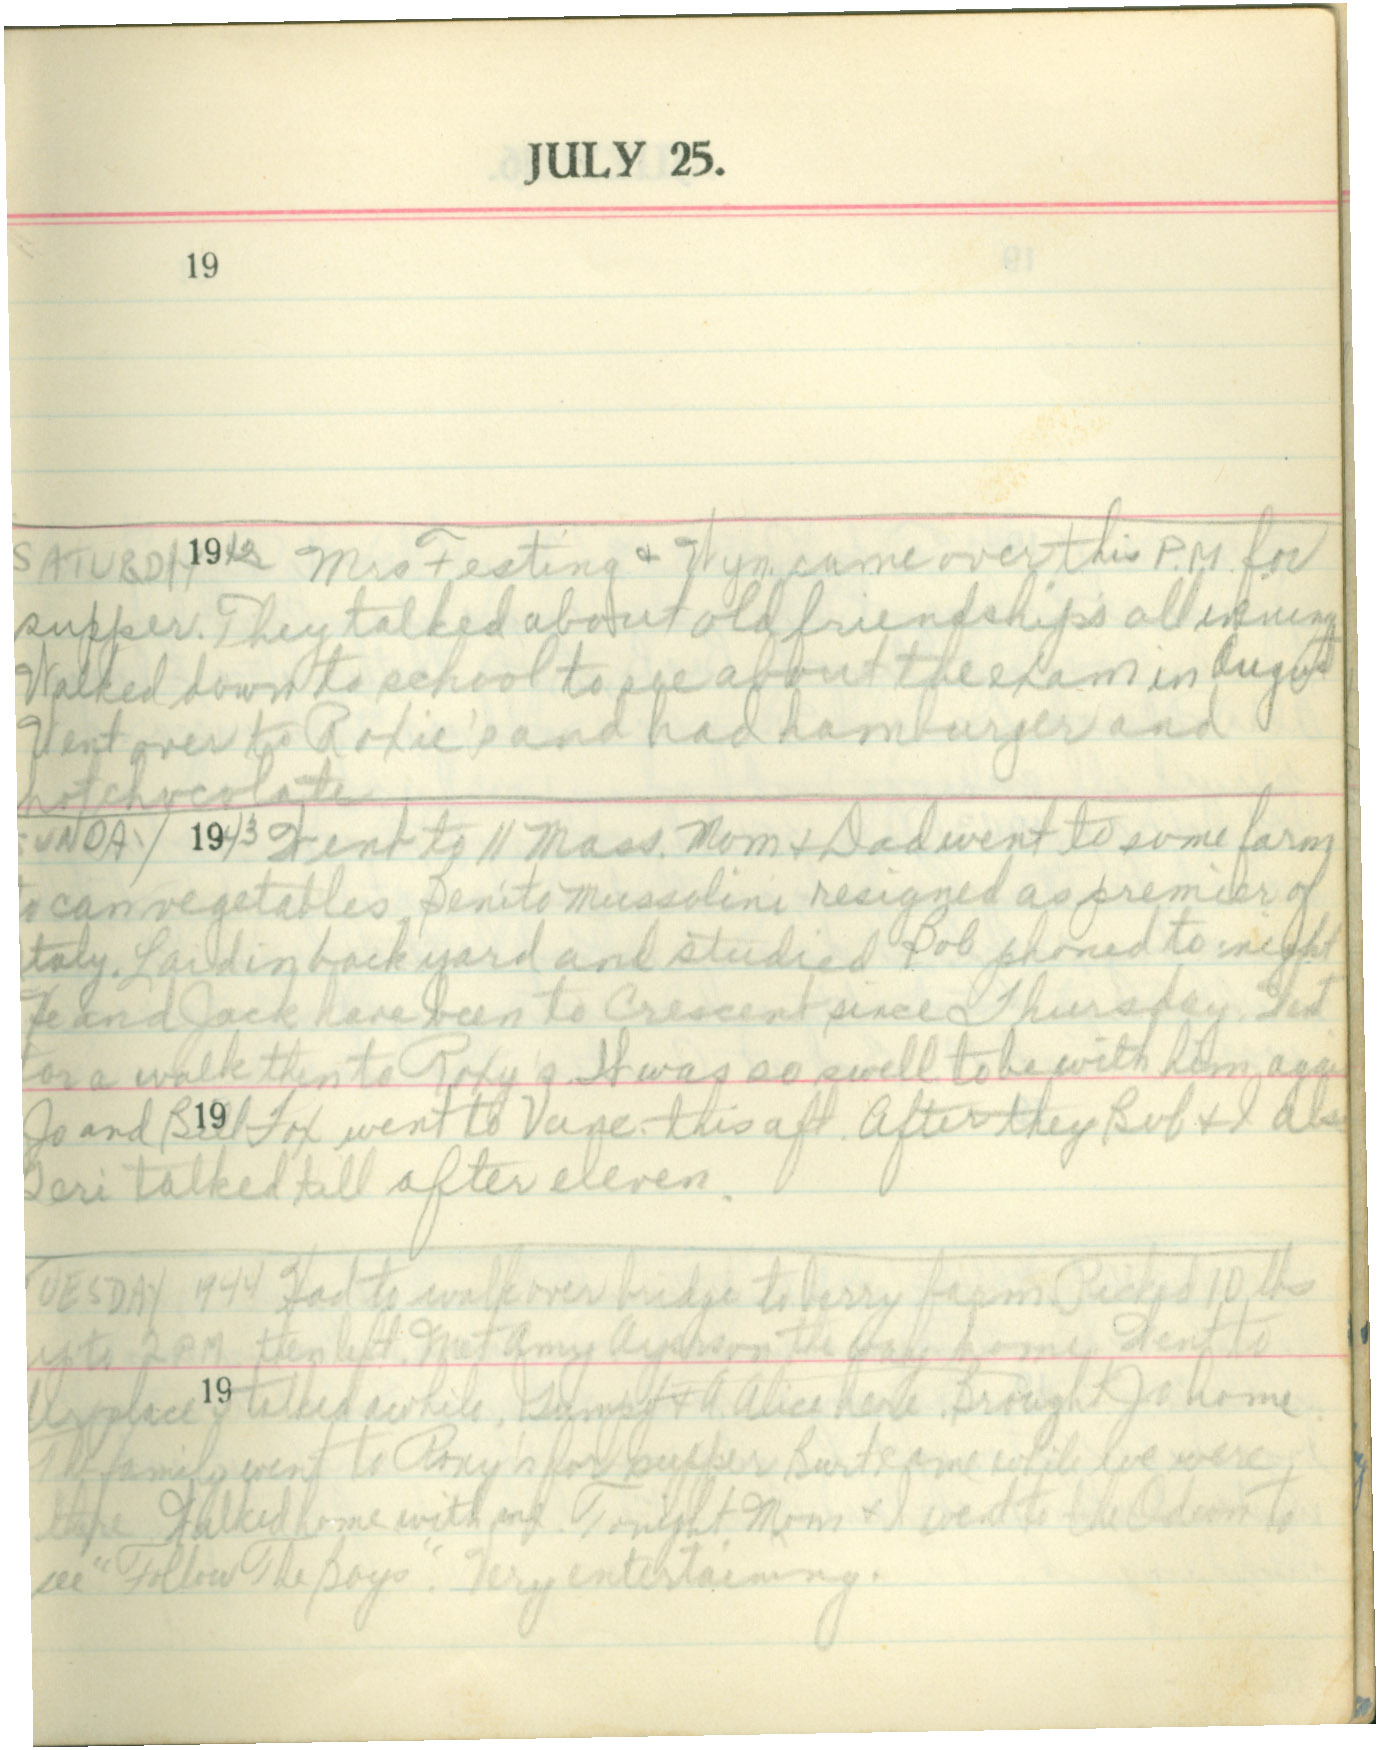 JULY 25.
19
SATURDAY 1942 Mrs Festing & Wyn. came over this P.M. for
supper. They talked about old friendships all evening
Walked down to school to see about the exam in August
Went over to Roxie's and had hamburger and
hot chocolate
SUNDAY 1943 Went to 11 Mass. Mom & Dad went to some farm
to can vegetables. Benito Mussolini resigned as premier of
Italy. Laid in back yard and studied Bob phoned to night
He and Jack have been to Crescent since Thursday. Went
for a walk then to Roxy's. It was so swell to be with him again
19
Jo and Bill Fox went to Vanc. this aft. After they Bob & I also
Geri talked till after eleven.
TUESDAY 1944 Had to walk over bridge to berry farm. Picked 10 lbs
up to 2 P.M. then left. Met Amy on the way home. Went to
19
place & talked awhile. & A. Alice here. Brought Jo home.
The family went to Roxy's for supper Burt came while we were
there Walked home with me. Tonight Mom & I went to the Odeon to
see "Follow The Boys". Very entertaining.